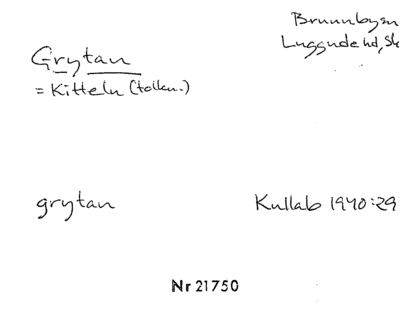 Brunnbysn
Luggude hd, Sk
Grytan
= Kitteln (tolkn.)
grytan
Kullab 1940:29
Nr 21750